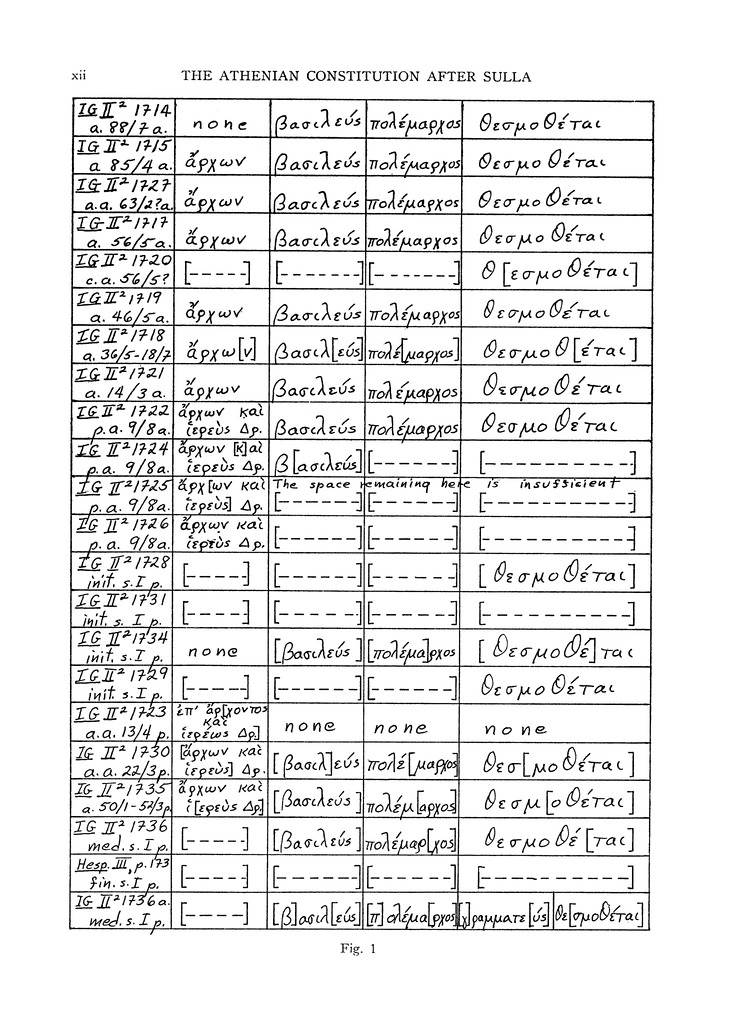 xii THE ATHENIAN CONSTITUTION AFTER SULLA
IG II² 1714 none βασιλεύς πολέμαρχος Θεσμοθέται
a. 88/7 a.
IG II² 1715 ἄρχων βασιλεύς πολέμαρχος Θεσμοθέται
a 85/4 a.
IG II² 1727 ἄρχων βασιλεύς πολέμαρχος Θεσμοθέται
a.a. 63/2?a.
IG II² 1717 ἄρχων βασιλεύς πολέμαρχος Θεσμοθέται
a. 56/5a.
IG II² 1720 [-----] [-------] [-------] Θ[εσμοθέται]
c.a. 56/5?
IG II² 1719 ἄρχων βασιλεύς πολέμαρχος Θεσμοθέται
a. 46/5a.
IG II² 1718 ἄρχω[ν] βασιλ[εύς] πολέ[μαρχος] Θεσμοθ[έται]
a. 36/5-18/7
IG II² 1721 ἄρχων βασιλεύς πολέμαρχος Θεσμοθέται
a. 14/3 a.
IG II² 1722 ἄρχων καὶ βασιλεύς πολέμαρχος Θεσμοθέται
p.a. 9/8a. ἱερεὺς Δρ.
IG II² 1724 ἄρχων [κ]αὶ β[ασιλεύς] [-------] [-----------]
p.a. 9/8a. ἱερεὺς Δρ.
IG II² 1725 ἄρχ[ων καὶ The space remaining here is insufficient
p.a. 9/8a. ἱερεὺς] Δρ. [-------] [-------] [-----------]
IG II² 1726 ἄρχων καὶ [-------] [-------] [-----------]
p.a. 9/8a. ἱερεὺς Δρ.
IG II² 1728 [-----] [-------] [-------] [Θεσμοθέται]
init. s. I p.
IG II² 1731 [-----] [-------] [-------] [-----------]
init. s. I p.
IG II² 1734 none [βασιλεύς] [πολέμα]ρχος [Θεσμοθέ]ται
init. s. I p.
IG II² 1729 [-----] [-------] [-------] Θεσμοθέται
init. s. I p.
IG II² 1723 ἐπ' ἄρ[χοντος none none none
καὶ
a.a. 13/4 p. ἱερέως Δρ]
IG II² 1730 [ἄρχων καὶ [βασιλ]εύς πολέ[μαρχος] Θεσ[μοθέται]
a.a. 22/3p. ἱερεὺς] Δρ.
IG II² 1735 ἄρχων καὶ [βασιλεύς] πολέμ[αρχος] Θεσμ[οθέται]
a. 50/1-52/3p. ἱ[ερεὺς Δρ]
IG II² 1736 [-----] [βασιλεύς] πολέμαρ[χος] Θεσμοθέ[ται]
med. s. I p.
Hesp. III, p. 173 [-----] [-------] [-------] [-----------]
fin. s. I p.
IG II² 1736 a. [-----] [β]ασιλ[εύς] [π]ολέμα[ρχος] [γ]ραμματε[ύς] θε[σμοθέται]
med. s. I p.
Fig. 1